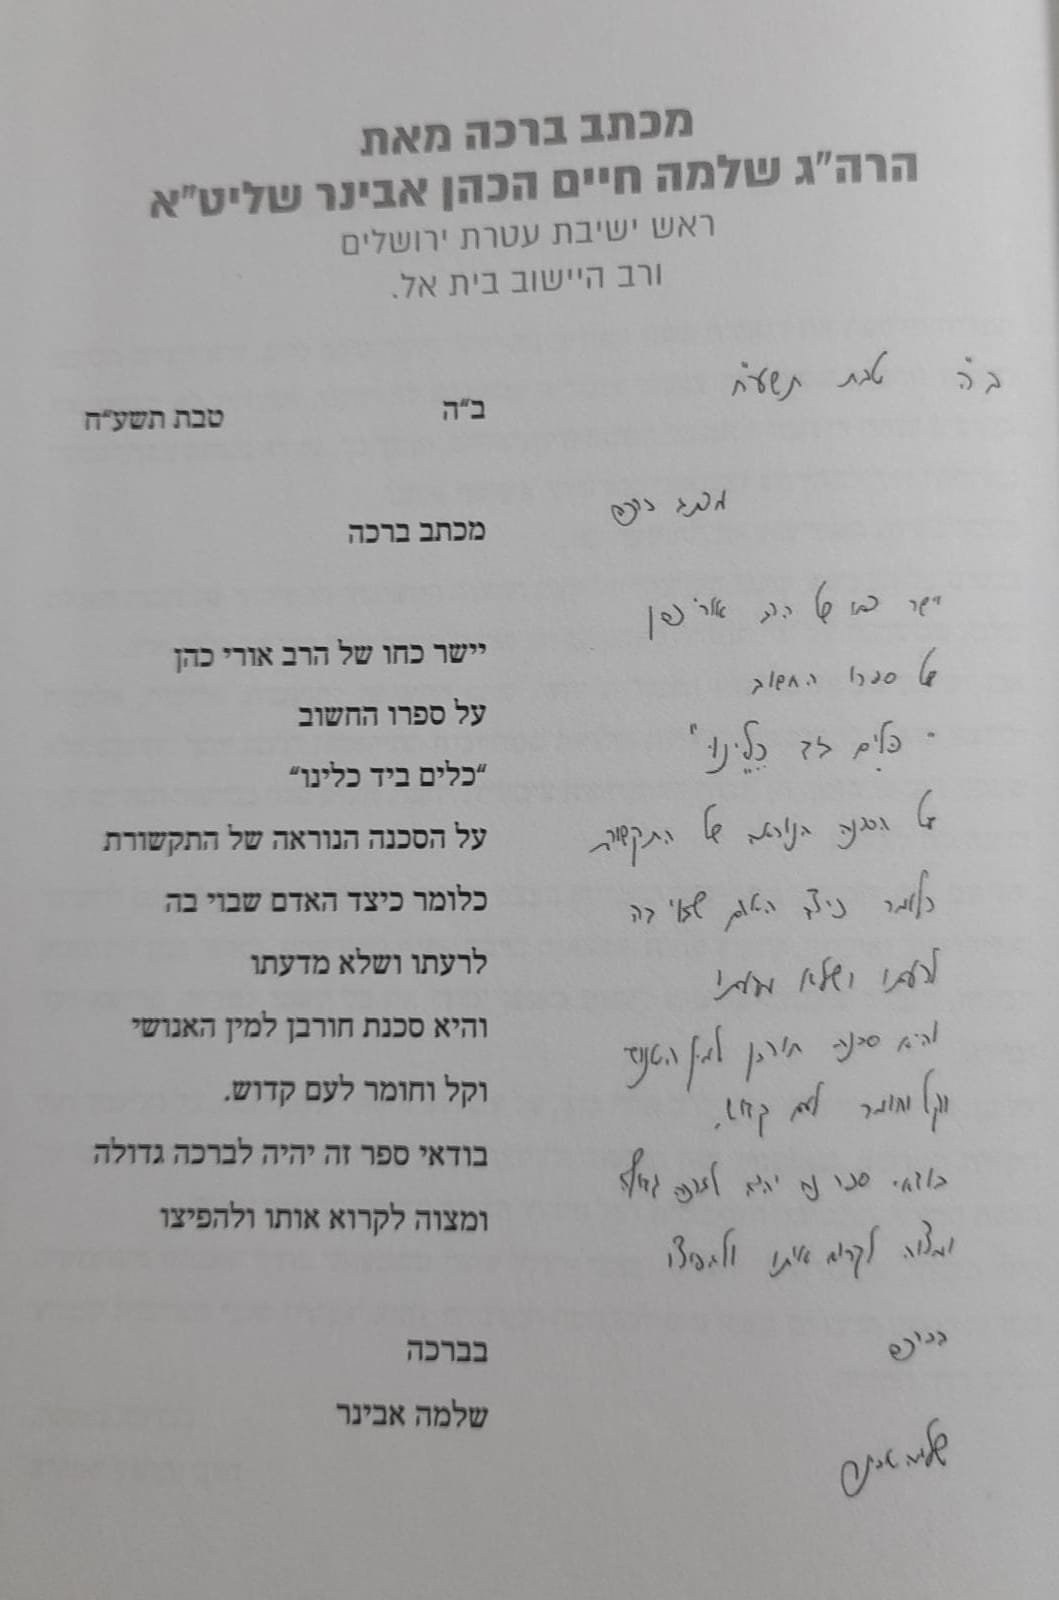 מכתב ברכה מאת
הרה"ג שלמה חיים הכהן אבינר שליט"א
ראש ישיבת עטרת ירושלים
ורב היישוב בית אל.
ב"ה טבת תשע"ח
ב"ה טבת תשע"ח
מכתב ברכה
מכתב ברכה
יישר כחו של הרב אורי כהן
יישר כחו של הרב אורי כהן
על ספרו החשוב
על ספרו החשוב
"כלים ביד כֵלֵינוּ"
"כלים ביד כלינו"
על הסכנה הנוראה של התקשורת
על הסכנה הנוראה של התקשורת
כלומר כיצד האדם שבוי בה
כלומר כיצד האדם שבוי בה
לרעתו ושלא מדעתו
לרעתו ושלא מדעתו
והיא סכנת חורבן למין האנושי
והיא סכנת חורבן למין האנושי
וקל וחומר לעם קדוש.
וקל וחומר לעם קדוש.
בודאי ספר זה יהיה לברכה גדולה
בודאי ספר זה יהיה לברכה גדולה
ומצוה לקרוא אותו ולהפיצו
ומצוה לקרוא אותו ולהפיצו
בברכה
בברכה
שלמה אבינר
שלמה אבינר